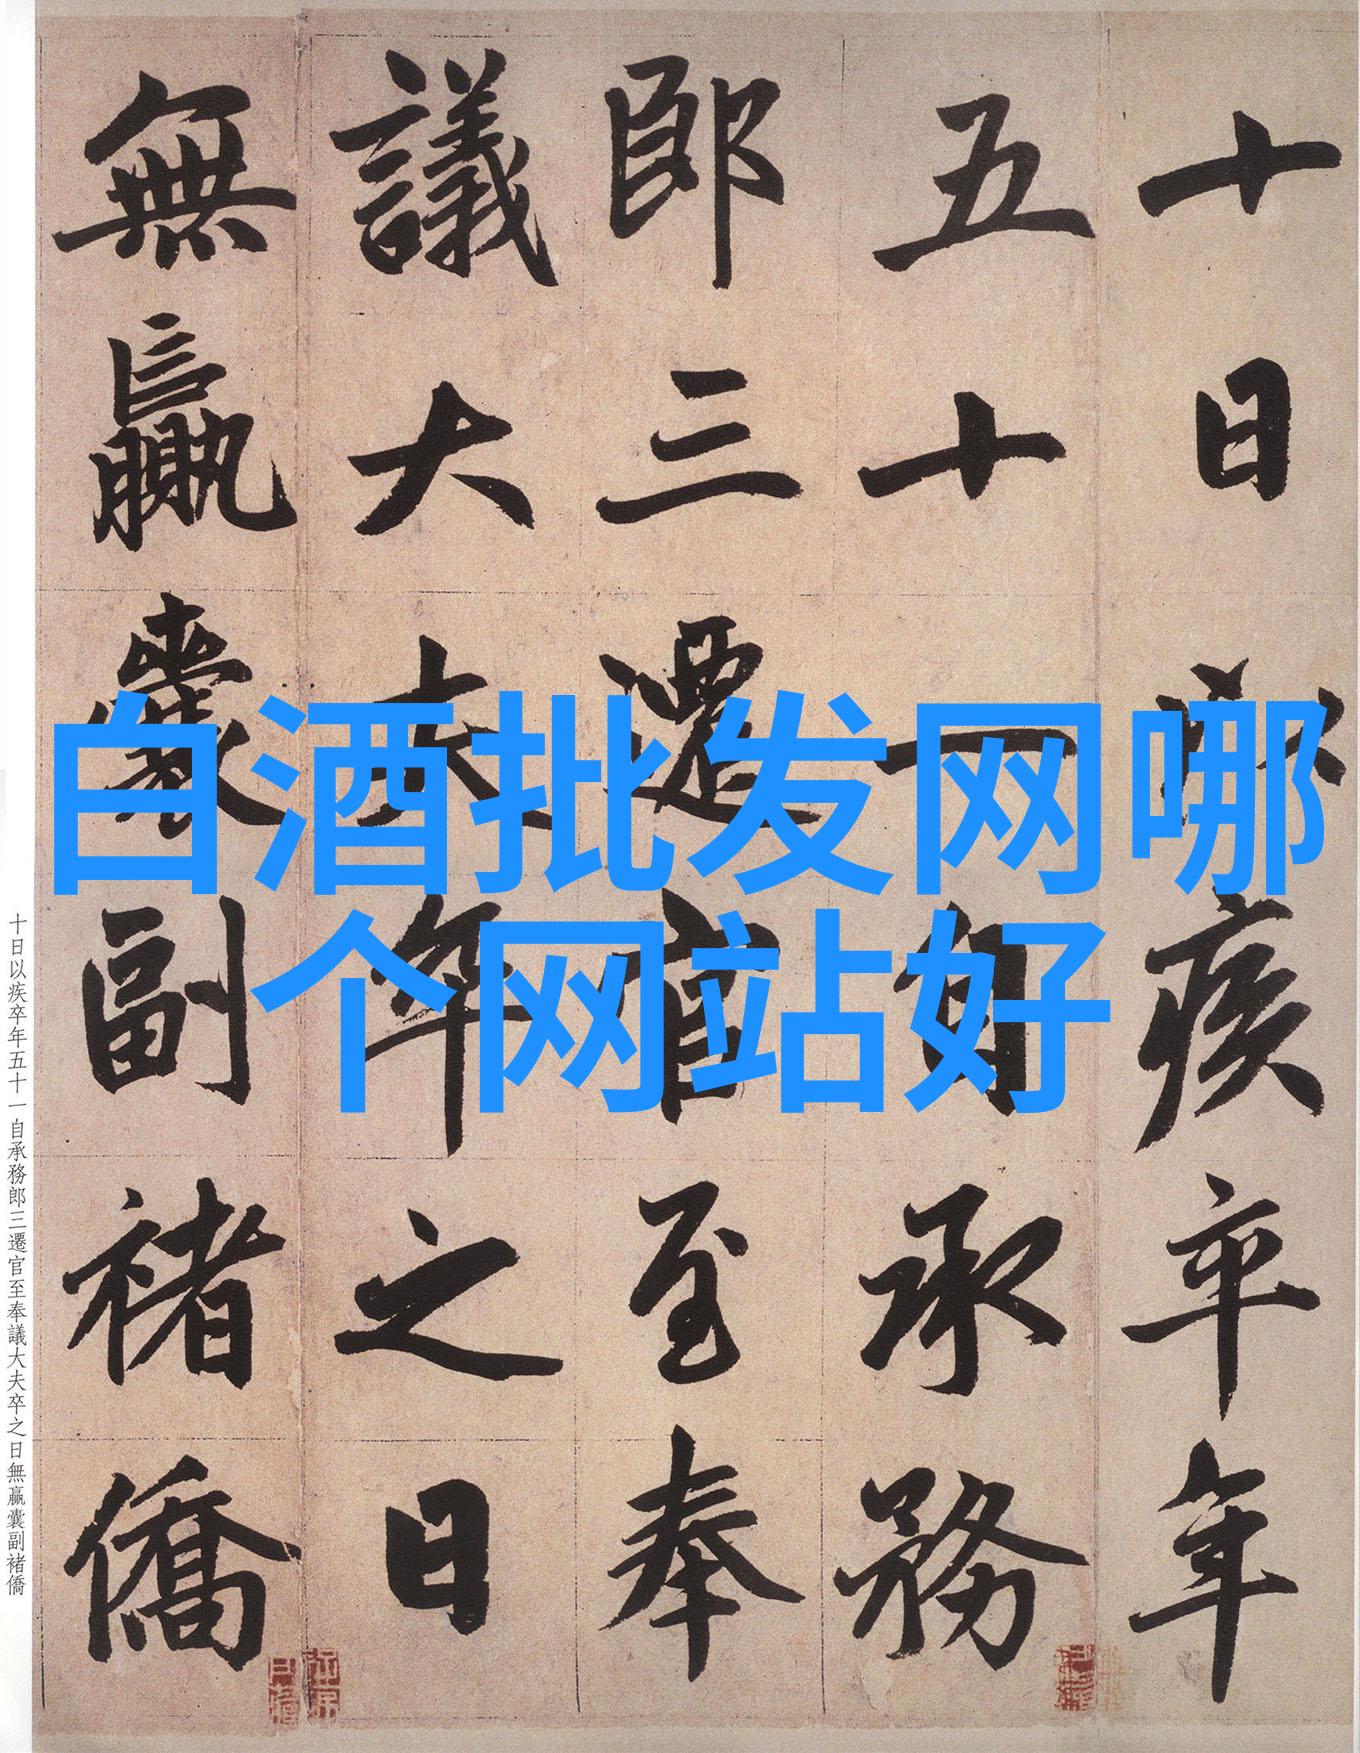 十日以疾卒年
五十一自承務
郎三遷官至奉
議大夫卒之日
無贏囊副褚僑
白酒批发网哪
个网站好
十日以疾卒年五十一自承務郎三遷官至奉議大夫卒之日無贏囊副褚僑